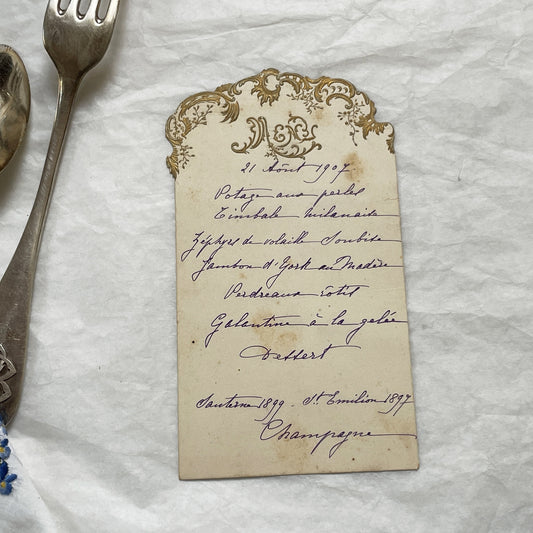 MENU
21 Août 1907
Potage aux perles
Timbale milanaise
Zéphyrs de volaille Soubise
Jambon d'York au Madère
Perdreaux rôtis
Galantine à la gelée
Dessert
Sauterne 1899 - St Emilion 1897
Champagne